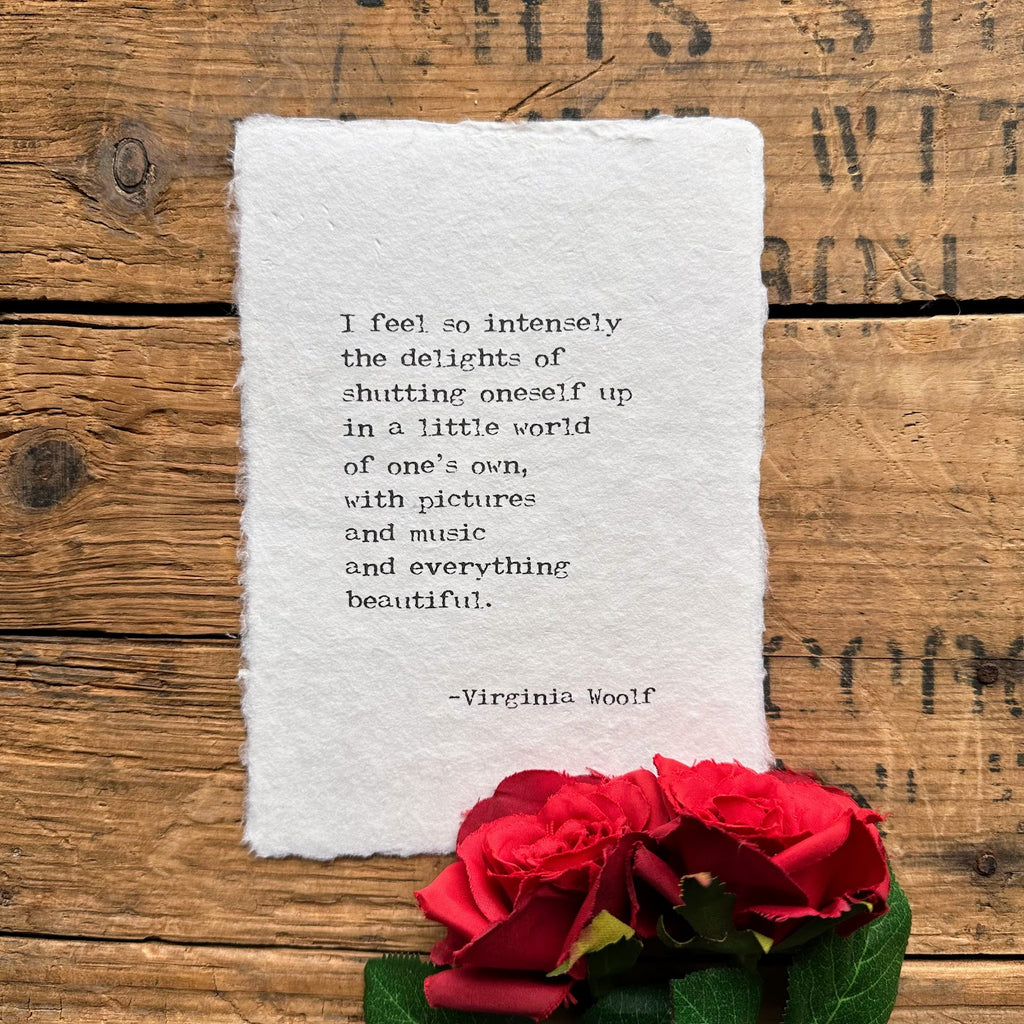 I feel so intensely
the delights of
shutting oneself up
in a little world
of one's own,
with pictures
and music
and everything
beautiful.
-Virginia Woolf